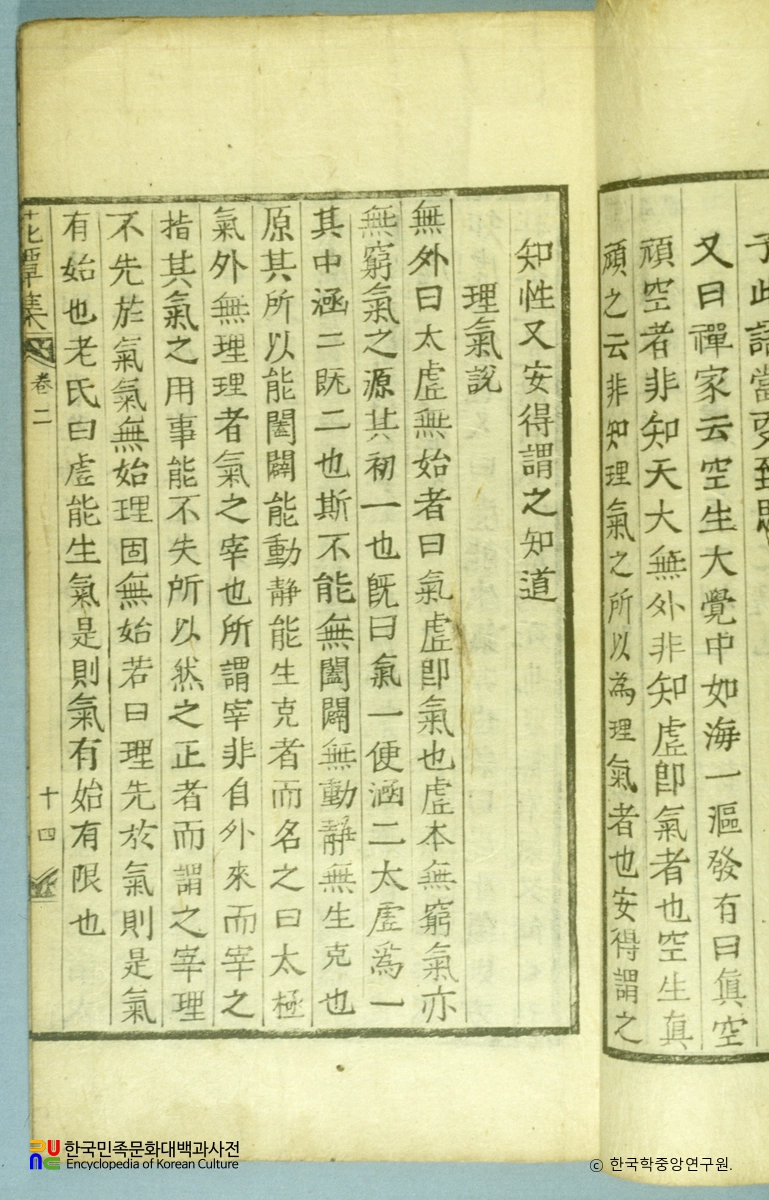 予此語當更致思
又曰禪家云空生大覺中如海一漚發有曰眞空
頑空者非知天大無外非知虛卽氣者也空生眞
頑之云非知理氣之所以爲理氣者也安得謂之
知性又安得謂之知道
理氣說
無外曰太虛無始者曰氣虛卽氣也虛本無窮氣亦
無窮氣之源其初一也旣曰氣一便涵二太虛爲一
其中涵二旣二也斯不能無闔闢無動靜無生克也
原其所以能闔闢能動靜能生克者而名之曰太極
氣外無理理者氣之宰也所謂宰非自外來而宰之
指其氣之用事能不失所以然之正者而謂之宰理
不先於氣氣無始理固無始若曰理先於氣則是氣
有始也老氏曰虛能生氣是則氣有始有限也
花潭集 卷二 十四
한국민족문화대백과사전
Encyclopedia of Korean Culture
© 한국학중앙연구원.